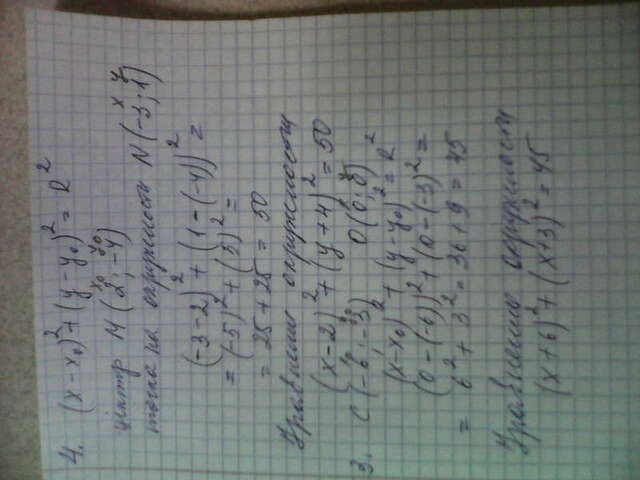 4. (x-x₀)²+(y-y₀)²=R²
x₀ y₀
Центр M(2;-4)
x y
точка на окружности N(-3;1)
(-3-2)²+(1-(-4))²=
=(-5)²+(5)²=
=25+25=50
Уравнение окружности
(x-2)²+(y+4)²=50
x₀ y₀ x y
3. C(-6;-3) O(0;0)
(x-x₀)²+(y-y₀)²=R²
(0-(-6))²+(0-(-3)²=
=6²+3²=36+9=45
Уравнение окружности
(x+6)²+(x+3)²=45